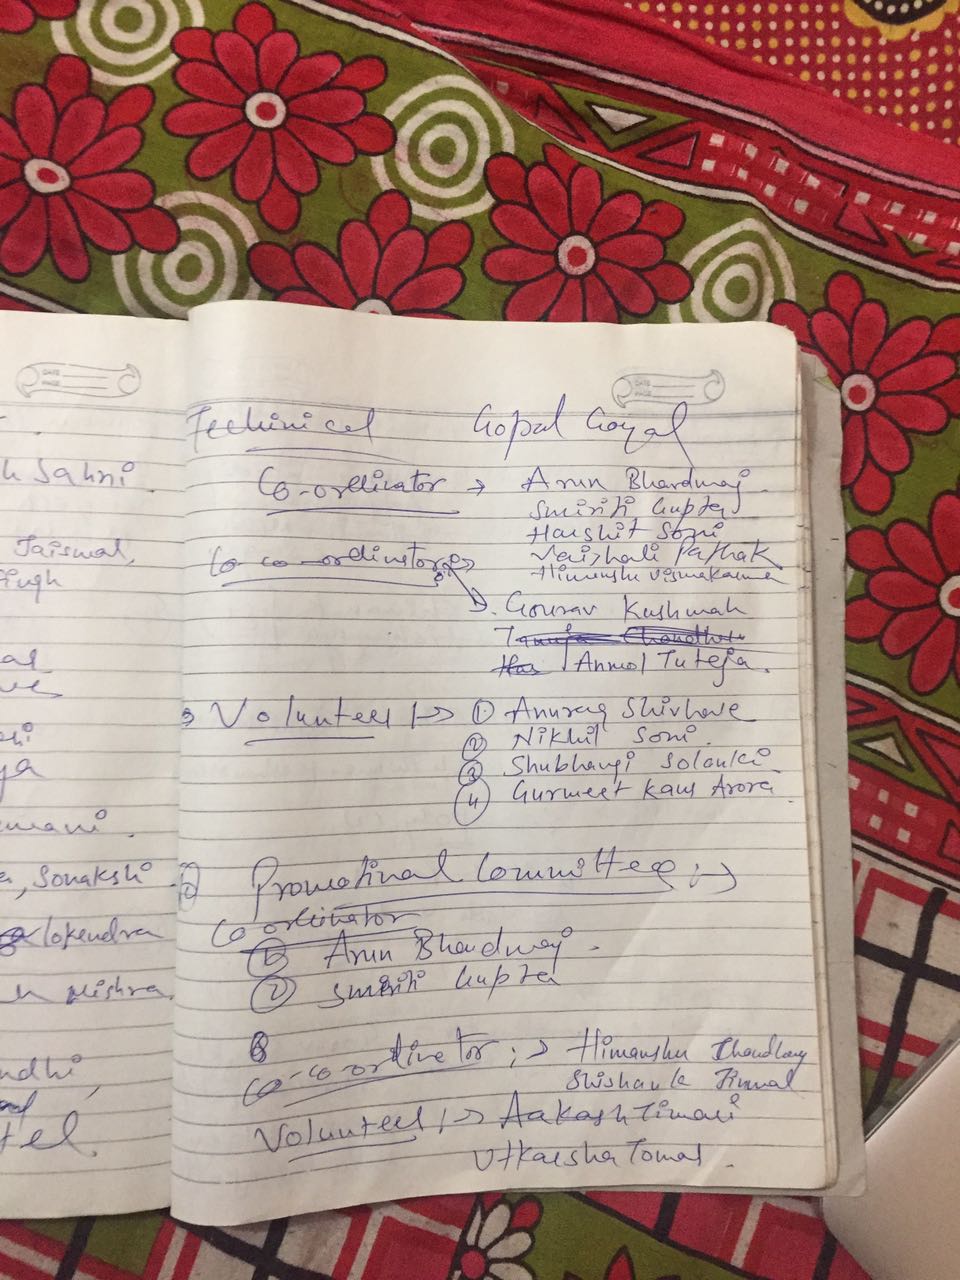 DATE
PAGE
DATE
PAGE
Sahni
Jaiswal,
Singh
Sonakshi
Lokendra
Mishra
Techinical Gopal Goyal
Co-ordinator → Arun Bhardwaj
Smiriti Gupta
Harshit Soni
Co co-ordinator Vaishali Pathak
Himanshu Vishwakarma
Gourav Kushwah
Anmol Tuteja.
Volunteer Anurag Shivhare
② Nikhil Soni.
③ Shubhangi Solanki
④ Gurmeet Kaur Arora
Promotinal Committee :→
Co ordinator
① Arun Bhardwaj.
② Smiriti Gupta
Co-co-ordinator :→ Himanshu Chaudhary
Shishank Jinwal
Volunteer Aakash Tiwari
Utkarsha Tomar.